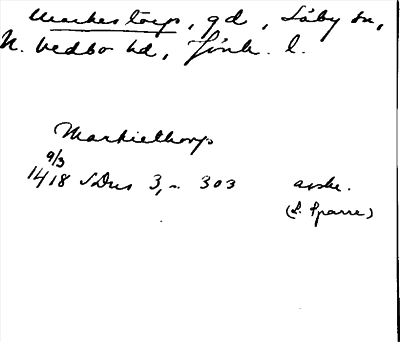 Markestorp, gd, Säby sn,
N. Vedbo hd, Jönk. l.
Markiethorp
9/3
1418 SDns 3, 303 avskr.
(S. Sparre)